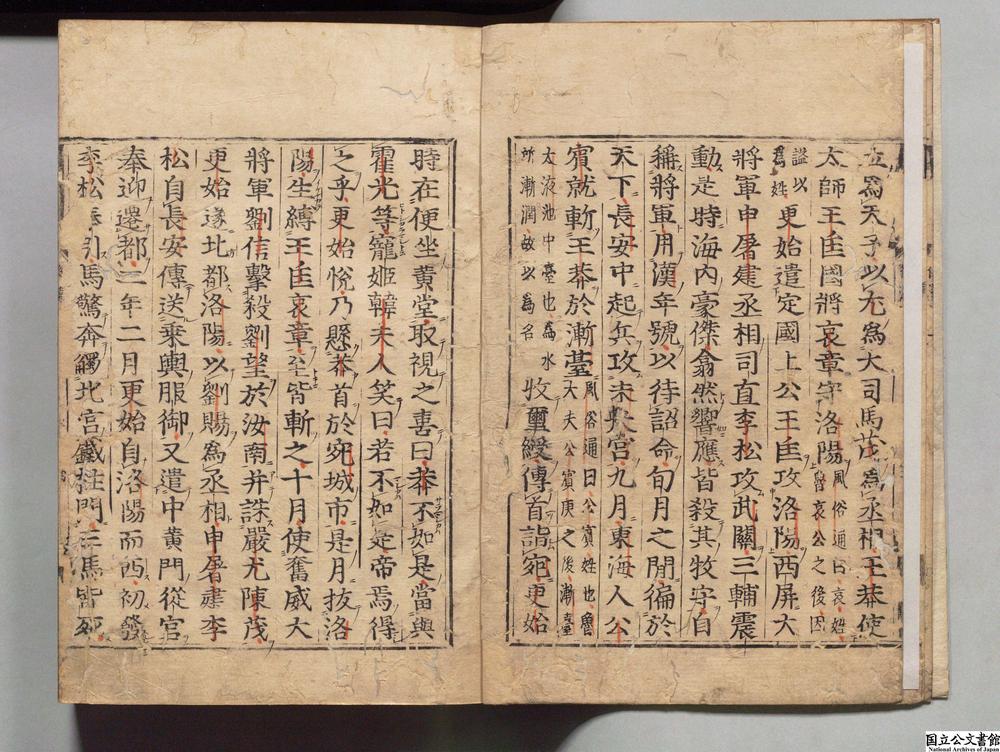 立爲天子以尤爲大司馬茂爲丞相王莽使
太師王匡國將哀章守洛陽風俗通曰哀姓魯哀公之後因
謚以爲姓更始遣定國上公王匡攻洛陽西屏大
將軍申屠建丞相司直李松攻武關三輔震
動是時海內豪傑翕然響應皆殺其牧守自
稱將軍用漢年號以待詔命旬月之閒徧於
天下長安中起兵攻未央宮九月東海人公
賓就斬王莽於漸臺風俗通曰公賓姓也魯大夫公賓庚之後漸臺
太液池中臺也爲水所漸潤故以爲名收璽綬傳首詣宛更始
時在便坐黃堂取視之喜曰莽不如是當與
霍光等寵姬韓夫人笑曰若不如是帝焉得
之乎更始悅乃懸莽首於宛城市是月拔洛
陽生縛王匡哀章至皆斬之十月使奮威大
將軍劉信擊殺劉望於汝南并誅嚴尤陳茂
更始遂北都洛陽以劉賜爲丞相申屠建李
松自長安傳送乘輿服御又遣中黃門從官
奉迎遷都二年二月更始自洛陽而西初發
李松奉引馬驚奔觸北宮鐵柱門三馬皆死
国立公文書館
National Archives of Japan